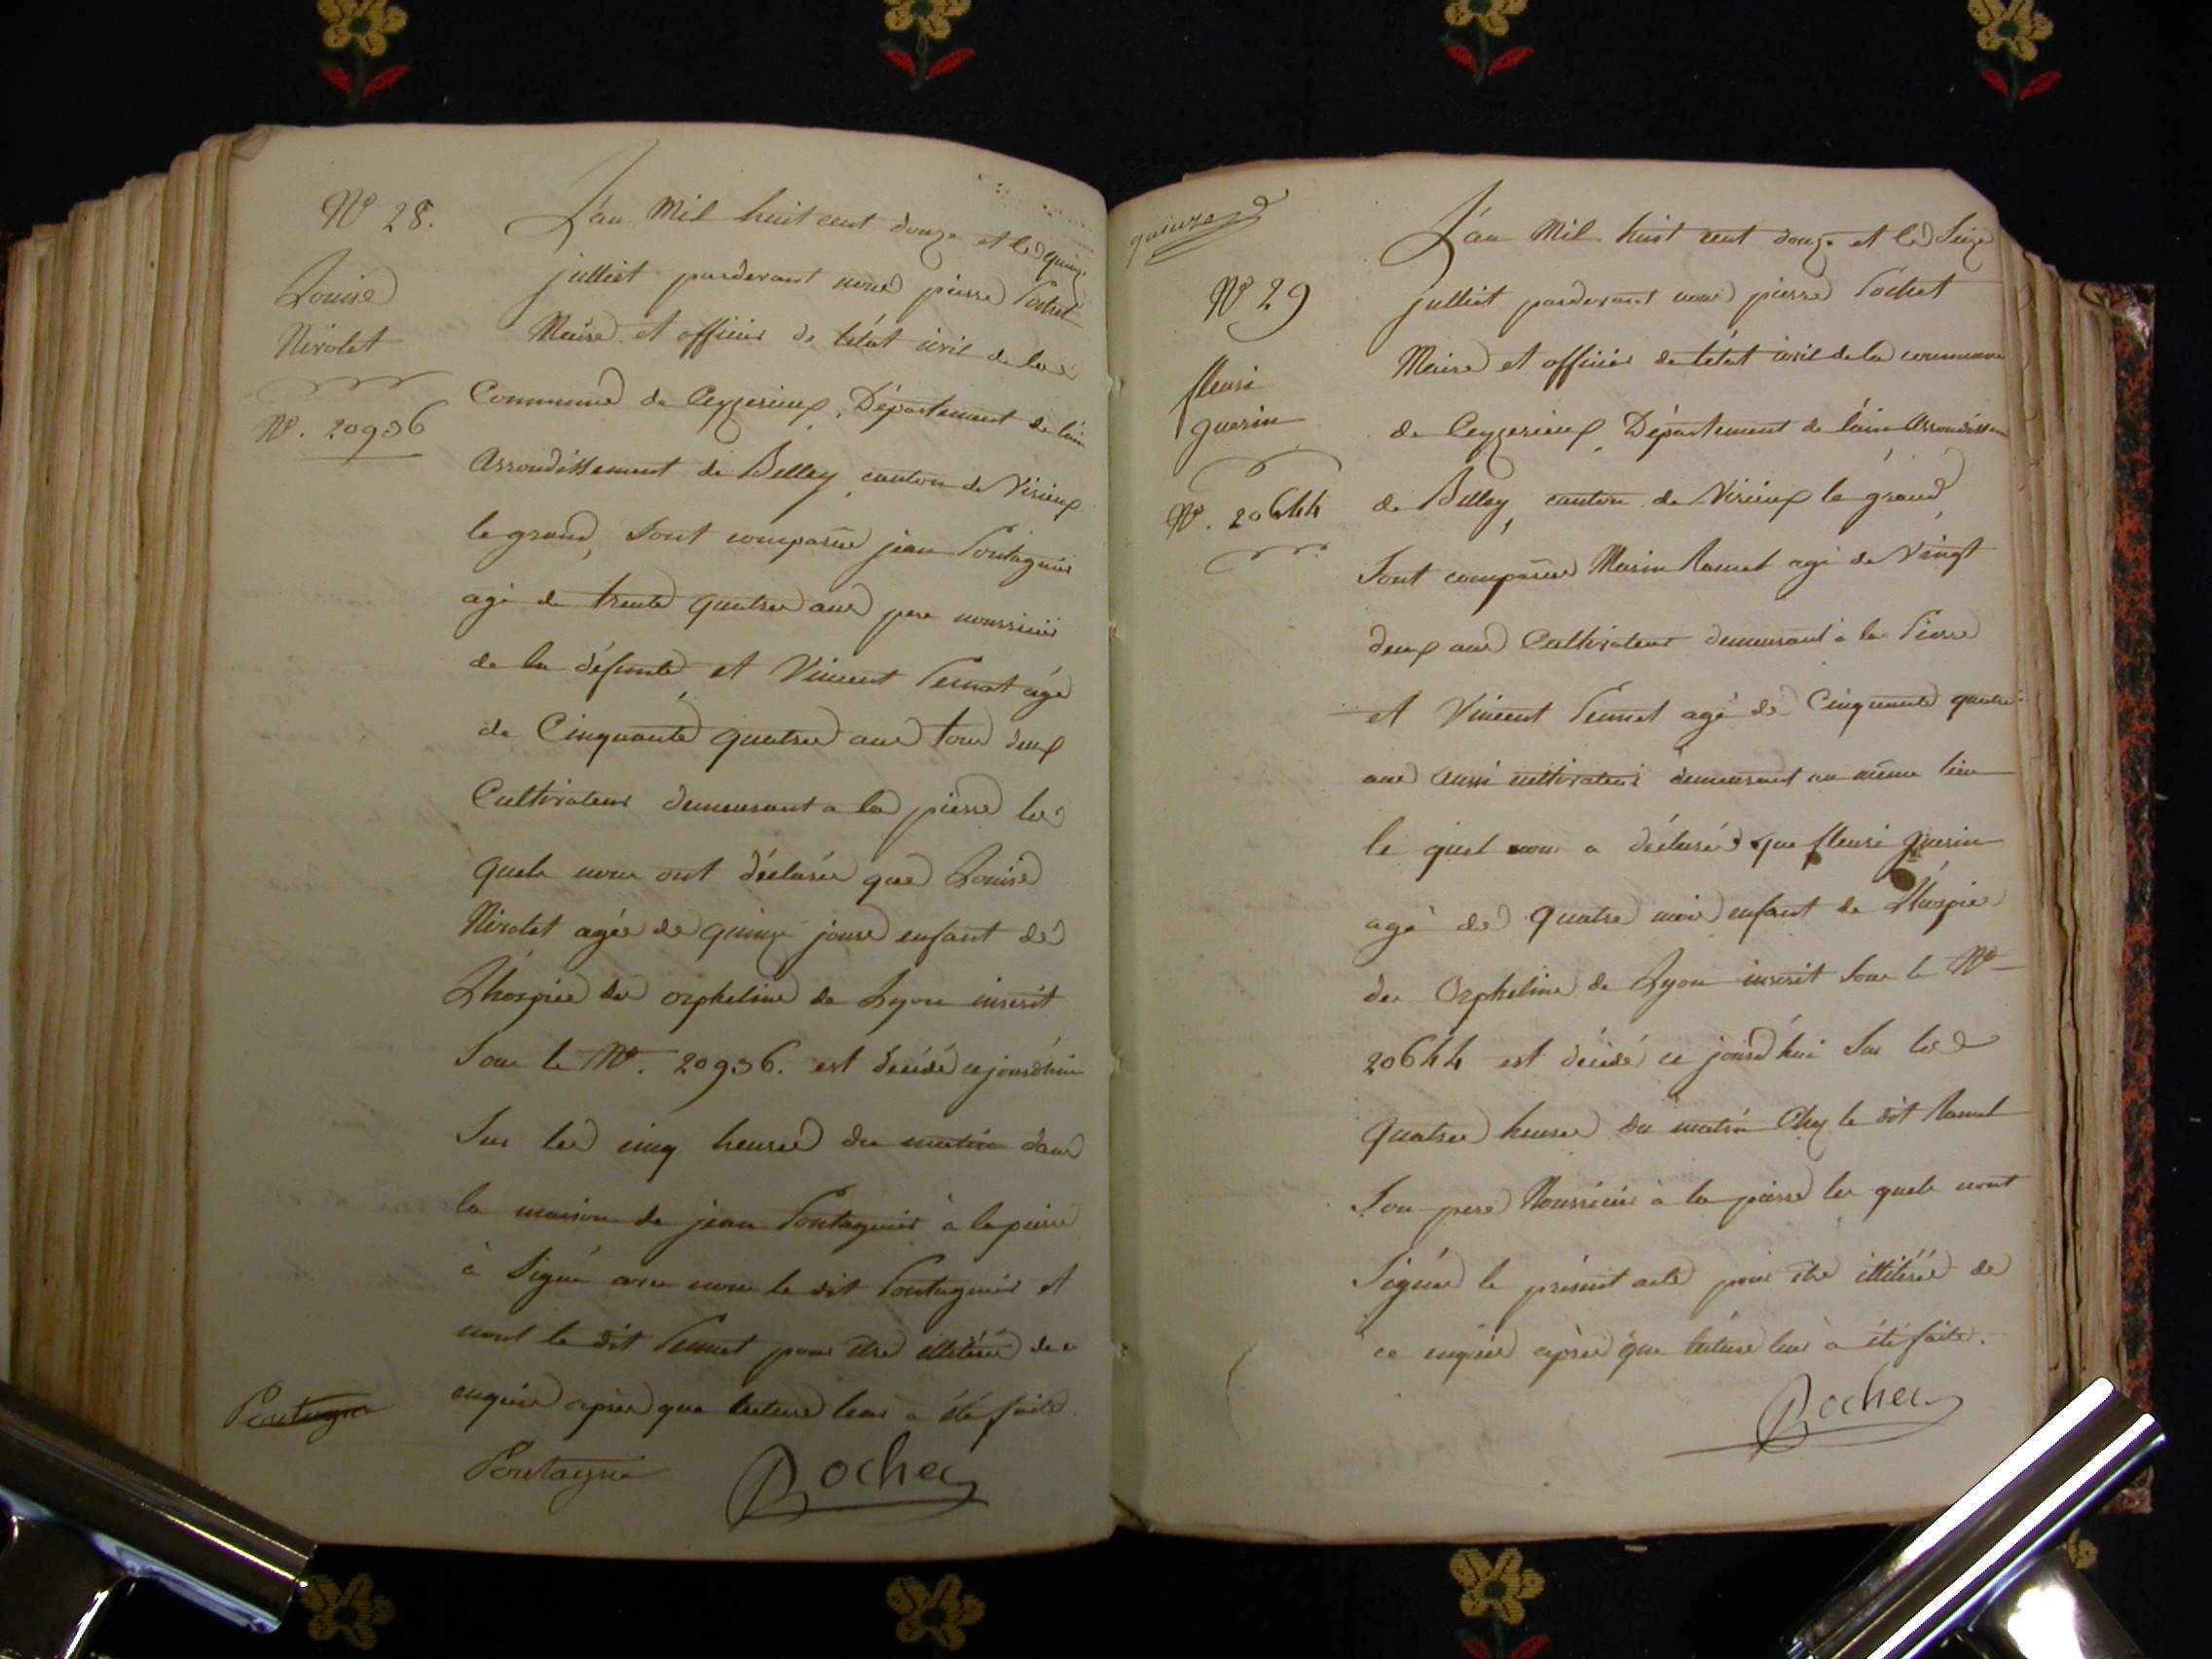 Nº 28.
Louise
Nirolet
Nº. 20936
L'an Mil huit cent douze et le quinze
julliet pardevant nous pierre Pochet
Maire et officier de l'état civil de la
Commune de Ceyzerieux, Département de l'ain
Arrondissement de Belley, canton de Virieux
le grand, Sont comparus jean Pontagnier
agé de trente quatre ans pere nourricier
de la défunte, et Vincent Pernet agé
de Cinquante quatre ans tous deux
Cultivateurs demeurant a la pierre les
quels nous ont déclarés que Louise
Nirolet agée de quinze jours enfant de
L'hospice des orphelins de Lyon inscrit
Sous le Nº. 20936. est décédé cejourd'hui
Sur les cinq heures du matin dans
la maison de jean Pontagnier à la pierre
à Signé avec nous le dit Pontagnier et
nont le dit Pernet pour être illitéré de ce
enquis après que lecture leur a été faite
Pontagnie
Pontagnie
Pochet
quinze
Nº 29
fleuri
guerin
Nº. 20644
L'an Mil huit cent douze et le Seize
julliet pardevant nous pierre Pochet
Maire et officier de l'état civil de la commune
de Ceyzerieux, Département de l'ain Arrondissement
de Belley, canton de Virieux le grand,
Sont comparus Marin Ramel agé de Vingt
deux ans Cultivateur demeurant à la Pierre
et Vincent Pernet agé de Cinquante quatre
ans aussi cultivateur demeurant au même lieu
le quel nous a déclarés que fleuri guerin
agé de quatre mois enfant de L'hospice
des Orphelins de Lyon inscrit Sous le Nº
20644 est décédé ce jourd'hui Sur les
quatres heures du matin Chez le dit Ramel
Son pere Nourricier à la pierre les quels nont
Signés le présent acte pour être illitérés de
ce enquis après que lecture leur à été faite.
Pochet